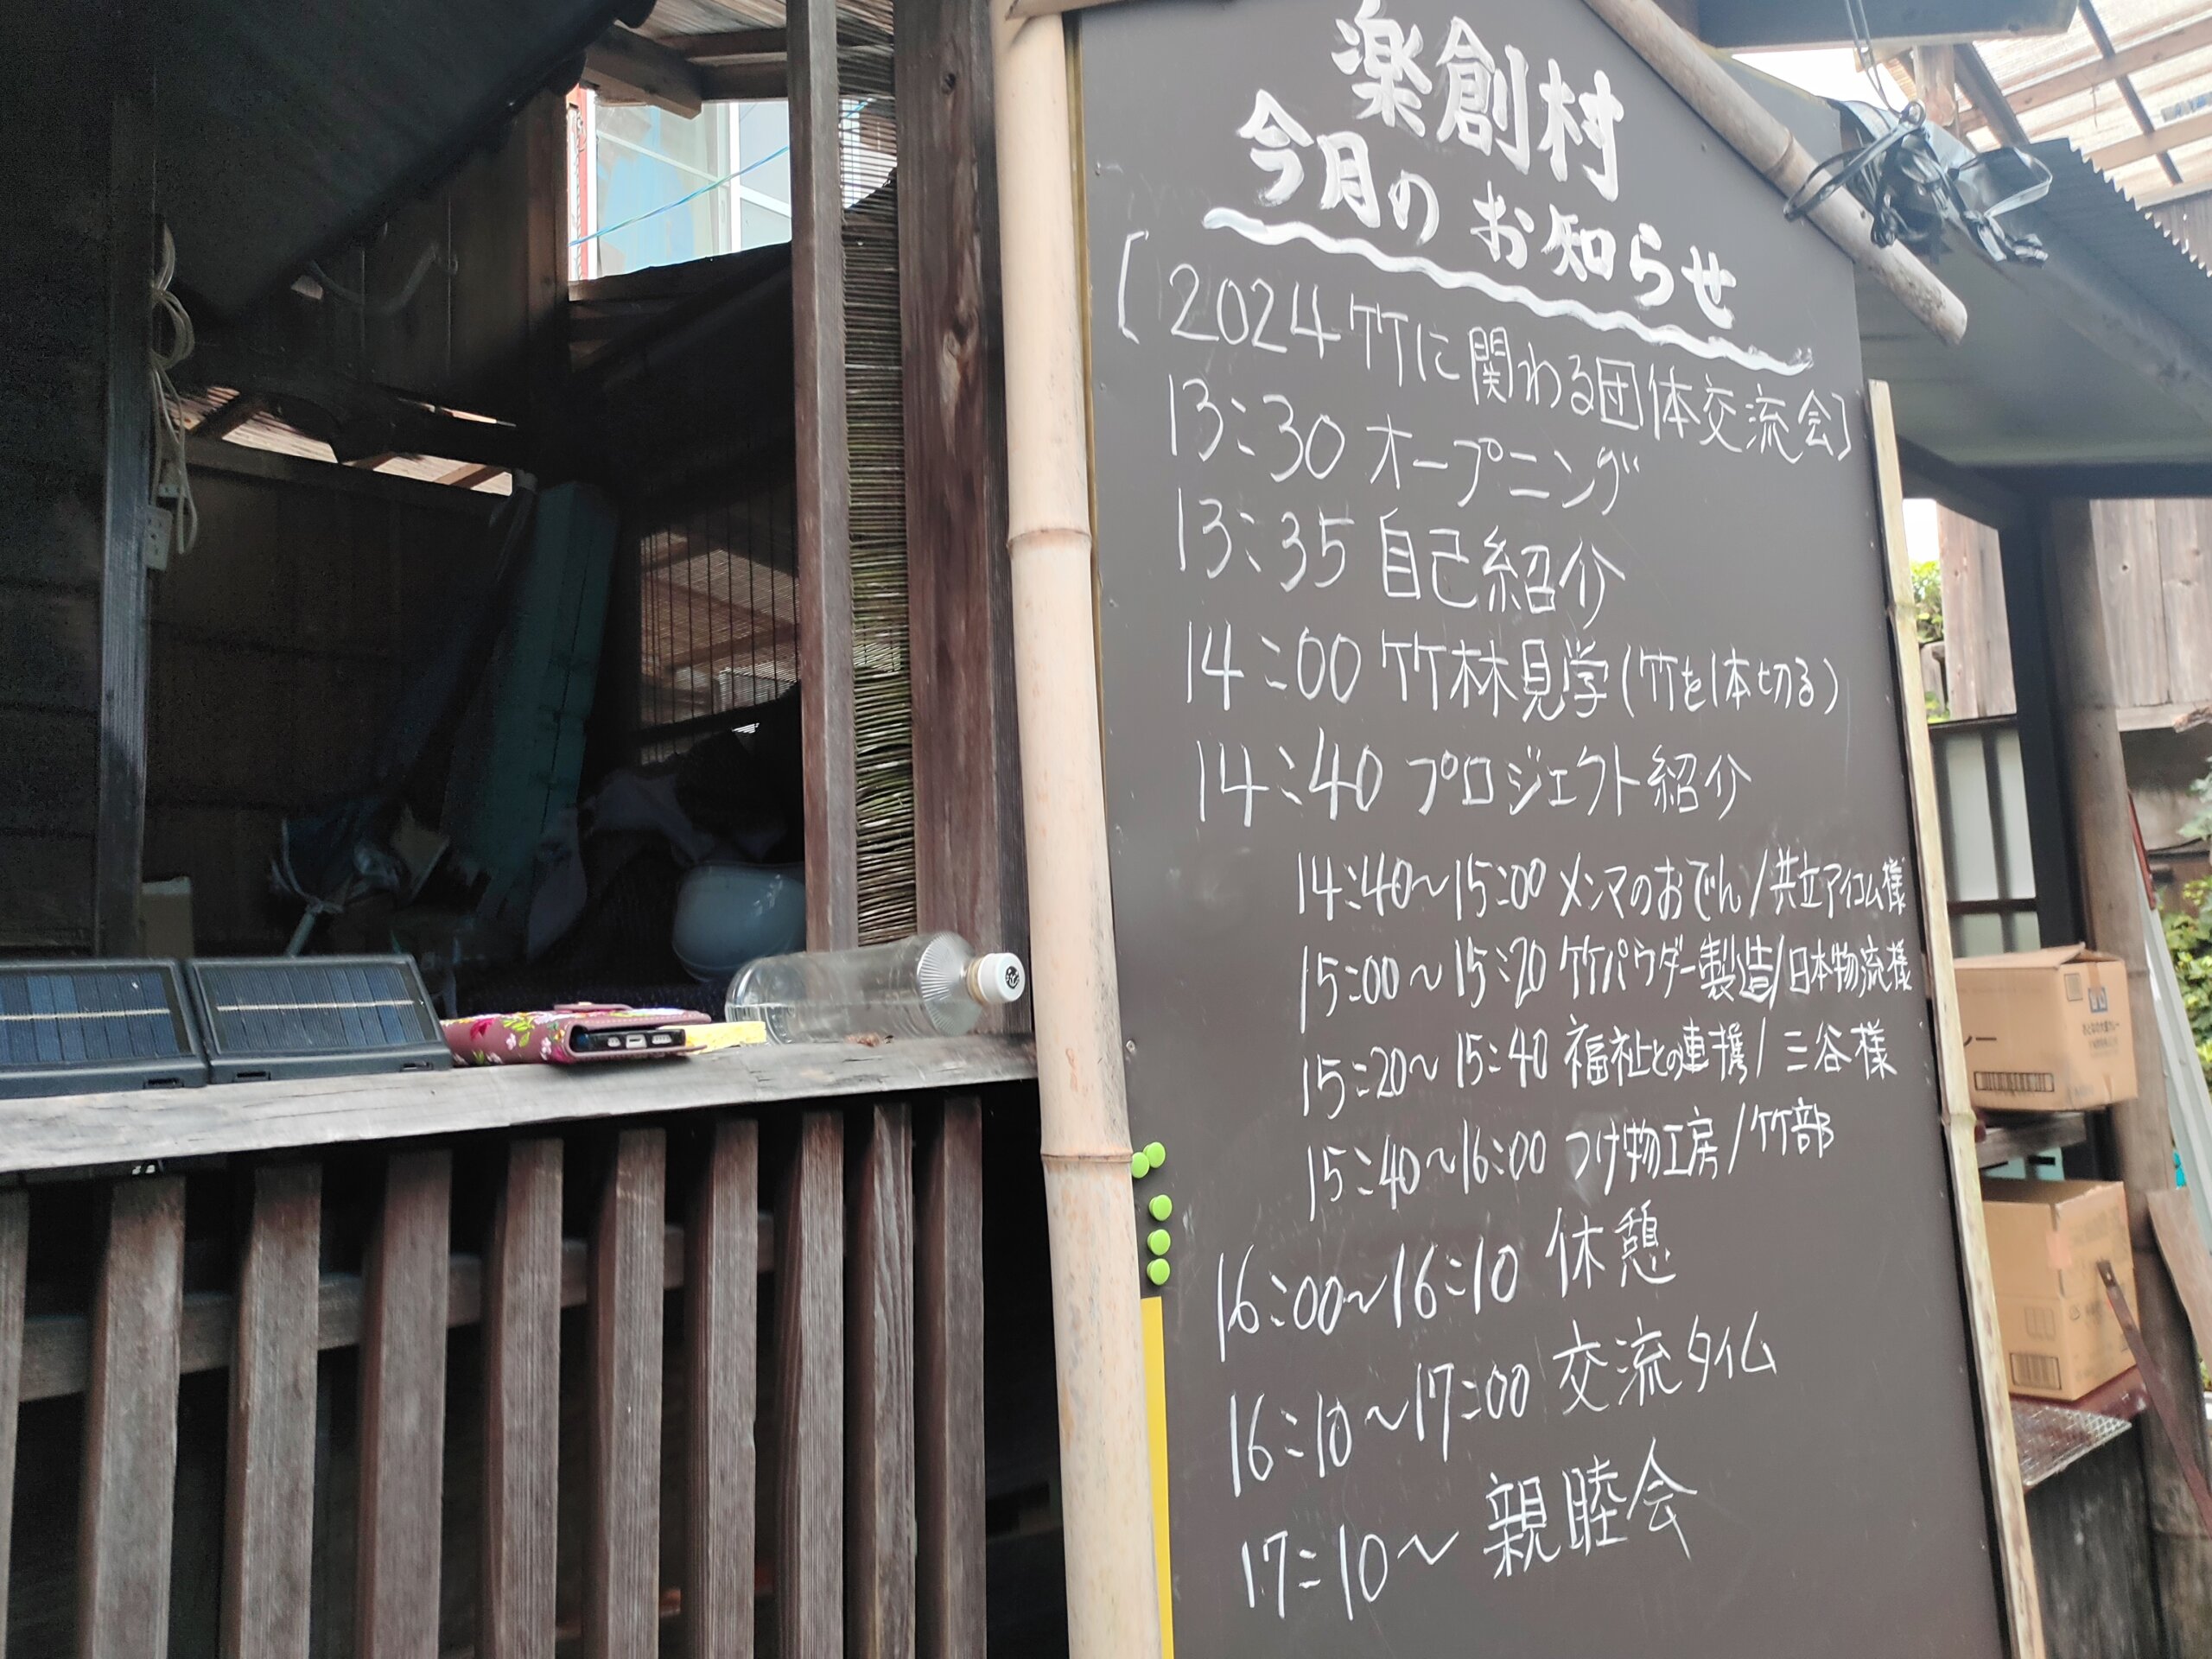 楽創村
今月のお知らせ
[2024竹に関わる団体交流会]
13:30 オープニング
13:35 自己紹介
14:00 竹林見学(竹を1本切る)
14:40 プロジェクト紹介
14:40~15:00 メンマのおでん/共立アイコム様
15:00~15:20 竹パウダー製造/日本物流様
15:20~15:40 福祉との連携/三谷様
15:40~16:00 つけ物工房/竹部
16:00~16:10 休憩
16:10~17:00 交流タイム
17:10~ 親睦会